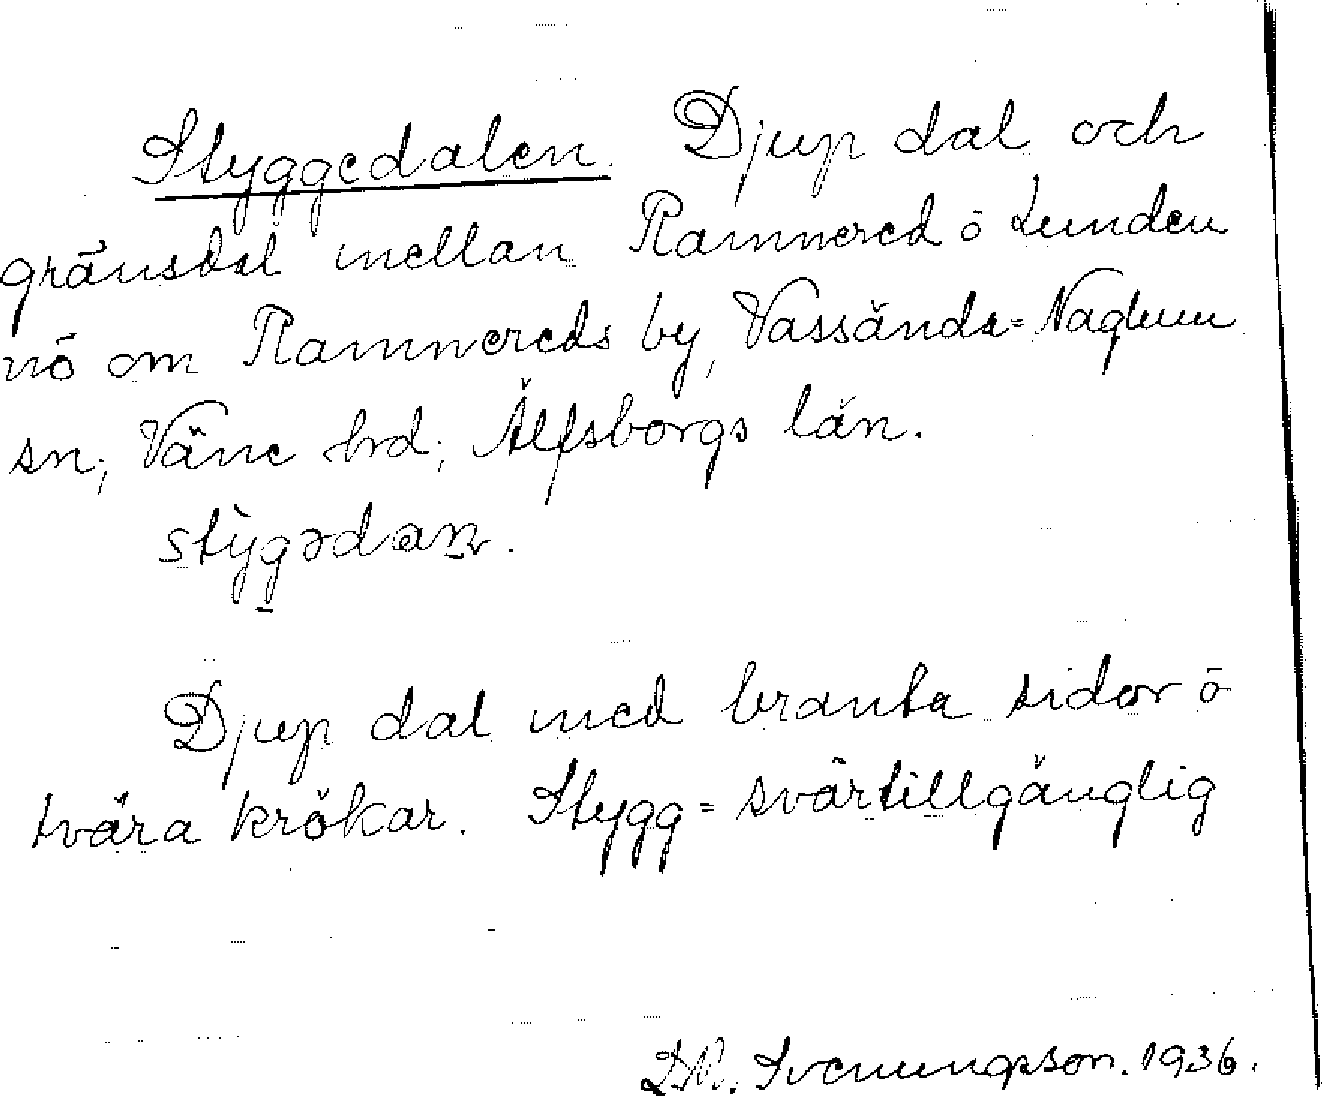 Styggedalen. Djup dal och
gränsdal mellan Ramnered o Lunden
nö om Ramnereds by, Vassända-Naglum
sn, Väne hrd, Älfsborgs län.
stỳgədaɳ.
Djup dal med branta sidor o
tvära krökar. Stygg = svårtillgänglig
D.N. Svenungsson. 1936.